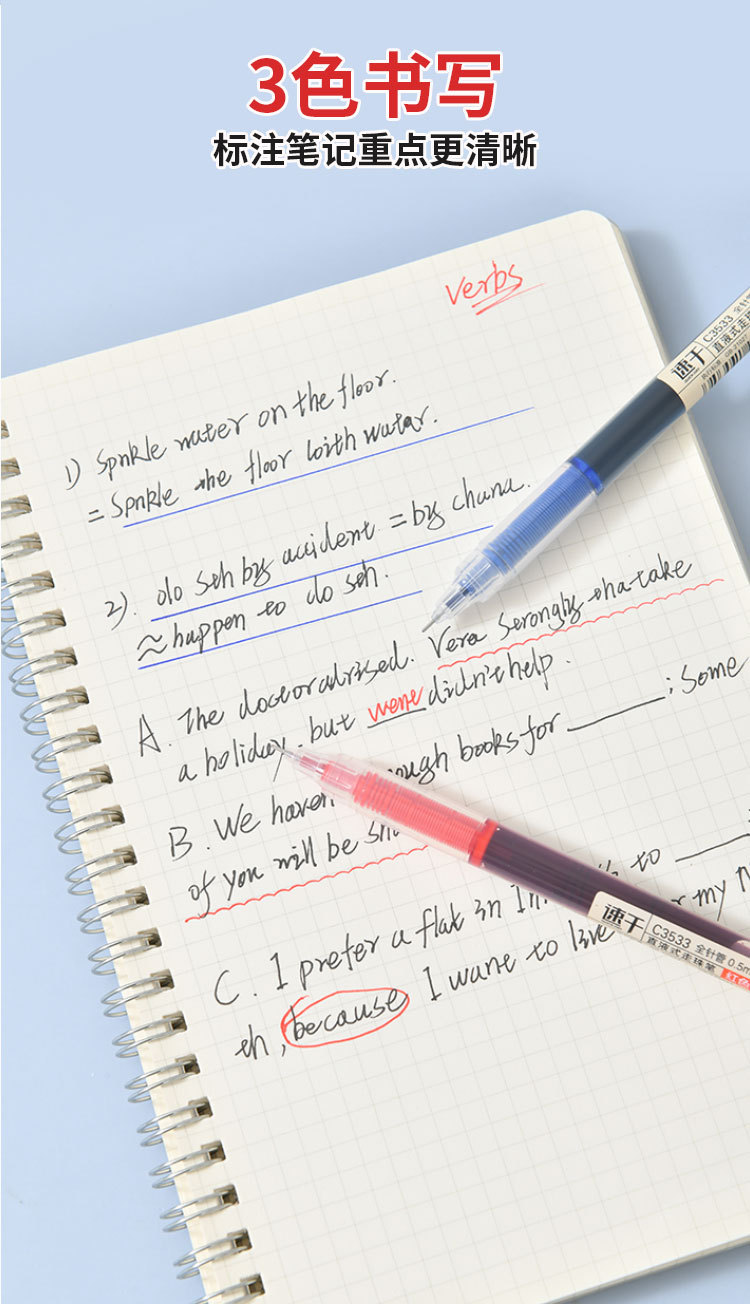 3色书写
标注笔记重点更清晰
Verbs
1) Sprnkle water on the floor.
= Sprnkle the floor with water.
2). do sth by accident = by
≈ happen to do sth.
A. The doctor advised. Vera strongly take
a holiday, but were didn't help.
B. We haven ough books for ______; Some
of you will be sh
C. I prefer a flat in In to ______
eh, because I want to live r my
速干 C3533 全针管
直液式走珠笔
速干 C3533 全针管 0.5m
直液式走珠笔 红色